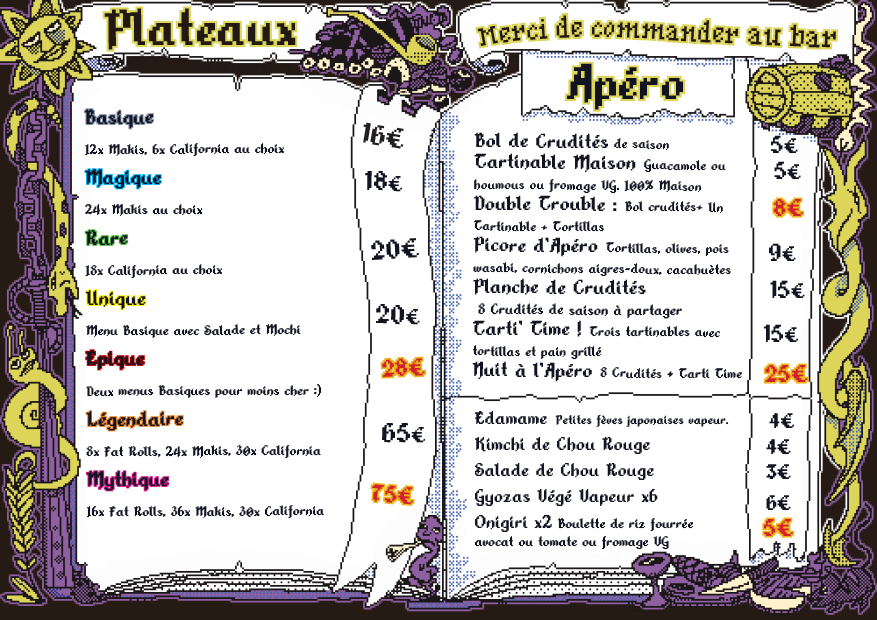 Plateaux
Basique
16€
12x Makis, 6x California au choix
Magique
18€
24x Makis au choix
Rare
20€
18x California au choix
Unique
20€
Menu Basique avec Salade et Mochi
Épique
28€
Deux menus Basiques pour moins cher :)
Légendaire
65€
8x Fat Rolls, 24x Makis, 30x California
Mythique
75€
16x Fat Rolls, 36x Makis, 30x California
Merci de commander au bar
Apéro
Bol de Crudités de saison
5€
Tartinable Maison Guacamole ou
5€
houmous ou fromage VG, 100% Maison
Double Trouble : Bol crudités+ Un
8€
Tartinable + Tortillas
Picore d'Apéro Tortillas, olives, pois
9€
wasabi, cornichons aigres-doux, cacahuètes
Planche de Crudités
15€
8 Crudités de saison à partager
Tarti' Time ! Trois tartinables avec
15€
tortillas et pain grillé
Nuit à l'Apéro 8 Crudités + Tarti Time
25€
Edamame Petites fèves japonaises vapeur.
4€
Kimchi de Chou Rouge
4€
Salade de Chou Rouge
3€
Gyozas Végé Vapeur x6
6€
Onigiri x2 Boulette de riz fourrée
5€
avocat ou tomate ou fromage VG